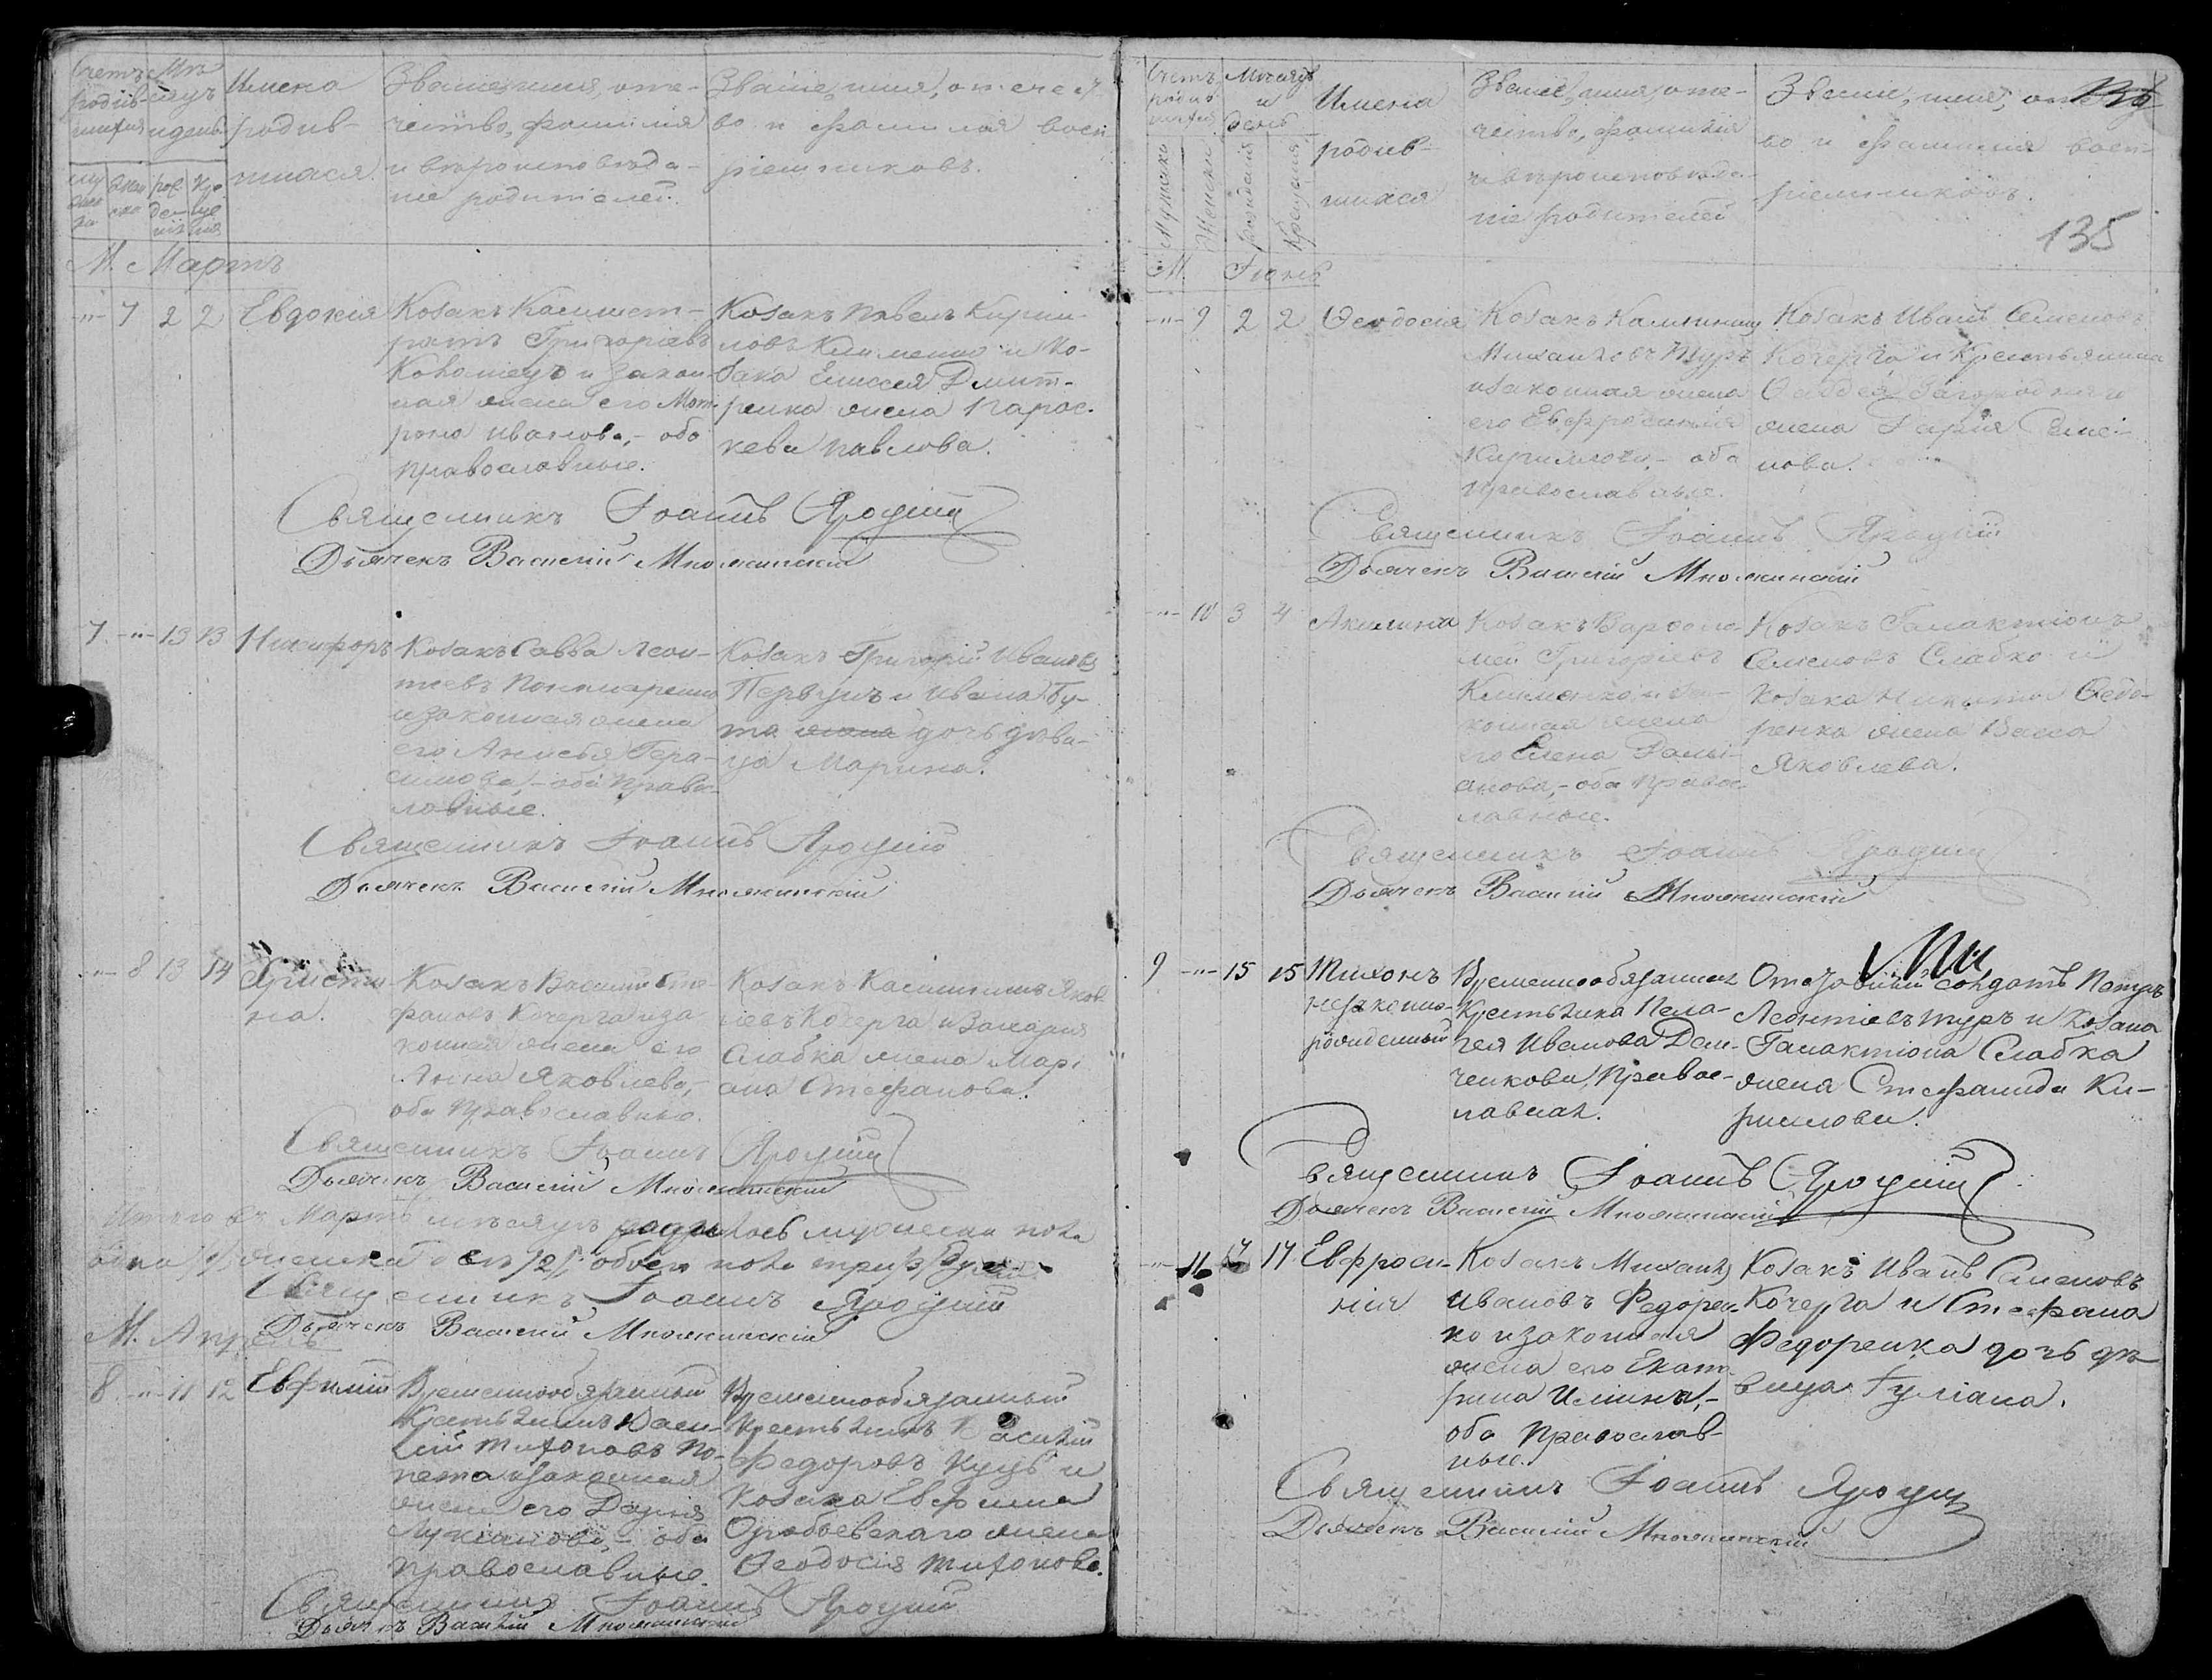 Счетъ родив-
шихся
Мѣ-
сяцъ
и день
Имена
родив-
шихся.
Званіе, имя, оте-
чество, фамилія
и вѣроисповѣда-
ніе родителей.
Званіе, имя, отечест
во и фамилія восп
ріемниковъ.
М. Мартъ
-"- 7 2 2 Евдокія
Козакъ Калист-
ратъ Григоріевъ
Коломіецъ и закон-
ная жена его Мат-
рона Иванова, - оба
православные.
Козакъ Павелъ Кирил-
ловъ Клименко и ко-
зака Елисея Дмит-
ренка жена Парас-
кева Павлова.
Священникъ Іоаннъ
Дьячекъ Василій Множинскій
7 -"- 13 13 Никифоръ
Козакъ Савва Леон-
тіевъ Пономаренко
и законная жена
его Анисья Гера-
симова, - оба правос-
лавные.
Козакъ Григорій Ивановъ
Первушъ и Ивана Бу-
та жена дочь дѣви-
ца Марина.
Священникъ Іоаннъ
Дьячекъ Василій Множинскій
-"- 8 13 14 Христи-
на.
Козакъ Василій Сте-
фановъ Кочерга и за-
конная жена его
Анна Яковлева, -
оба православные.
Козакъ Калинникъ Яков-
левъ Кочерга и Захарія
Слабка жена Марі-
ана Стефанова.
Священникъ Іоаннъ
Дьячекъ Василій Множинскій
Итого въ Мартѣ мѣсяцѣ родилось мужеска пола
одинъ /1/ женска двѣ /2/ обоего пола три /3/
Священникъ Іоаннъ
Дьячекъ Василій Множинскій
М. Апрѣль
8 -"- 11 12 Евфимій
Временнообязанный
крестьянинъ Васи-
лій Тихоновъ По-
пета и законная
жена его Дарія
Лукіанова, - оба
православные.
Временнообязанный
крестьянинъ Василій
Федоровъ Куцъ и
козака Евфима
жена
Феодосія Тихонова.
Священникъ Іоаннъ
Дьячекъ Василій Множинскій
Счетъ
родив-
шихся
Мѣсяцъ
и
день
Мужска
Женска
рожденія
крещенія
Имена
родив-
шихся
Званіе, имя, оте-
чество, фамилія
и вѣроисповѣда-
ніе родителей
Званіе, имя,
во и фамилія восп-
ріемниковъ.
135
М. Іюнь
-"- 9 2 2 Феодосія
Козакъ Калинникъ
Михайловъ Туръ
и законная жена
его Евфросинія
Кириллова, - оба
православные.
Козакъ Иванъ Семеновъ
Кочерга и крестьянина
Фаддея Загородняго
жена Дарія Семе-
нова.
Священникъ Іоаннъ
Дьячекъ Василій Множинскій
-"- 10 3 4 Акилина
Козакъ Варфоло-
мей Григоріевъ
Клименко и за-
конная жена
его Елена Дамі-
анова, - оба правос-
лавные.
Козакъ Галактіонъ
Семеновъ Слабко и
козака Никиты Федо-
ренка жена Васса
Яковлева.
Священникъ Іоаннъ
Дьячекъ Василій Множинскій
9 -"- 15 15 Тихонъ
незаконно-
рожденный
Временнообязанная
крестьянка Пела-
гея Иванова Дем-
ченкова, правос-
лавная.
Отставный солдатъ Петръ
Леонтіевъ Туръ и козака
Галактіона Слабка
жена Стефанида Ки-
риллова.
Священникъ Іоаннъ
Дьячекъ Василій Множинскій
-"- 11 17 17 Евфроси-
нія
Козакъ Михаилъ
Ивановъ Федорен-
ко и законная
жена его Екате-
рина Ильина, -
оба православ-
ные.
Козакъ Иванъ Семеновъ
Кочерга и Стефана
Федоренка дочь дѣ-
вица Іуліана.
Священникъ Іоаннъ
Дьячекъ Василій Множинскій